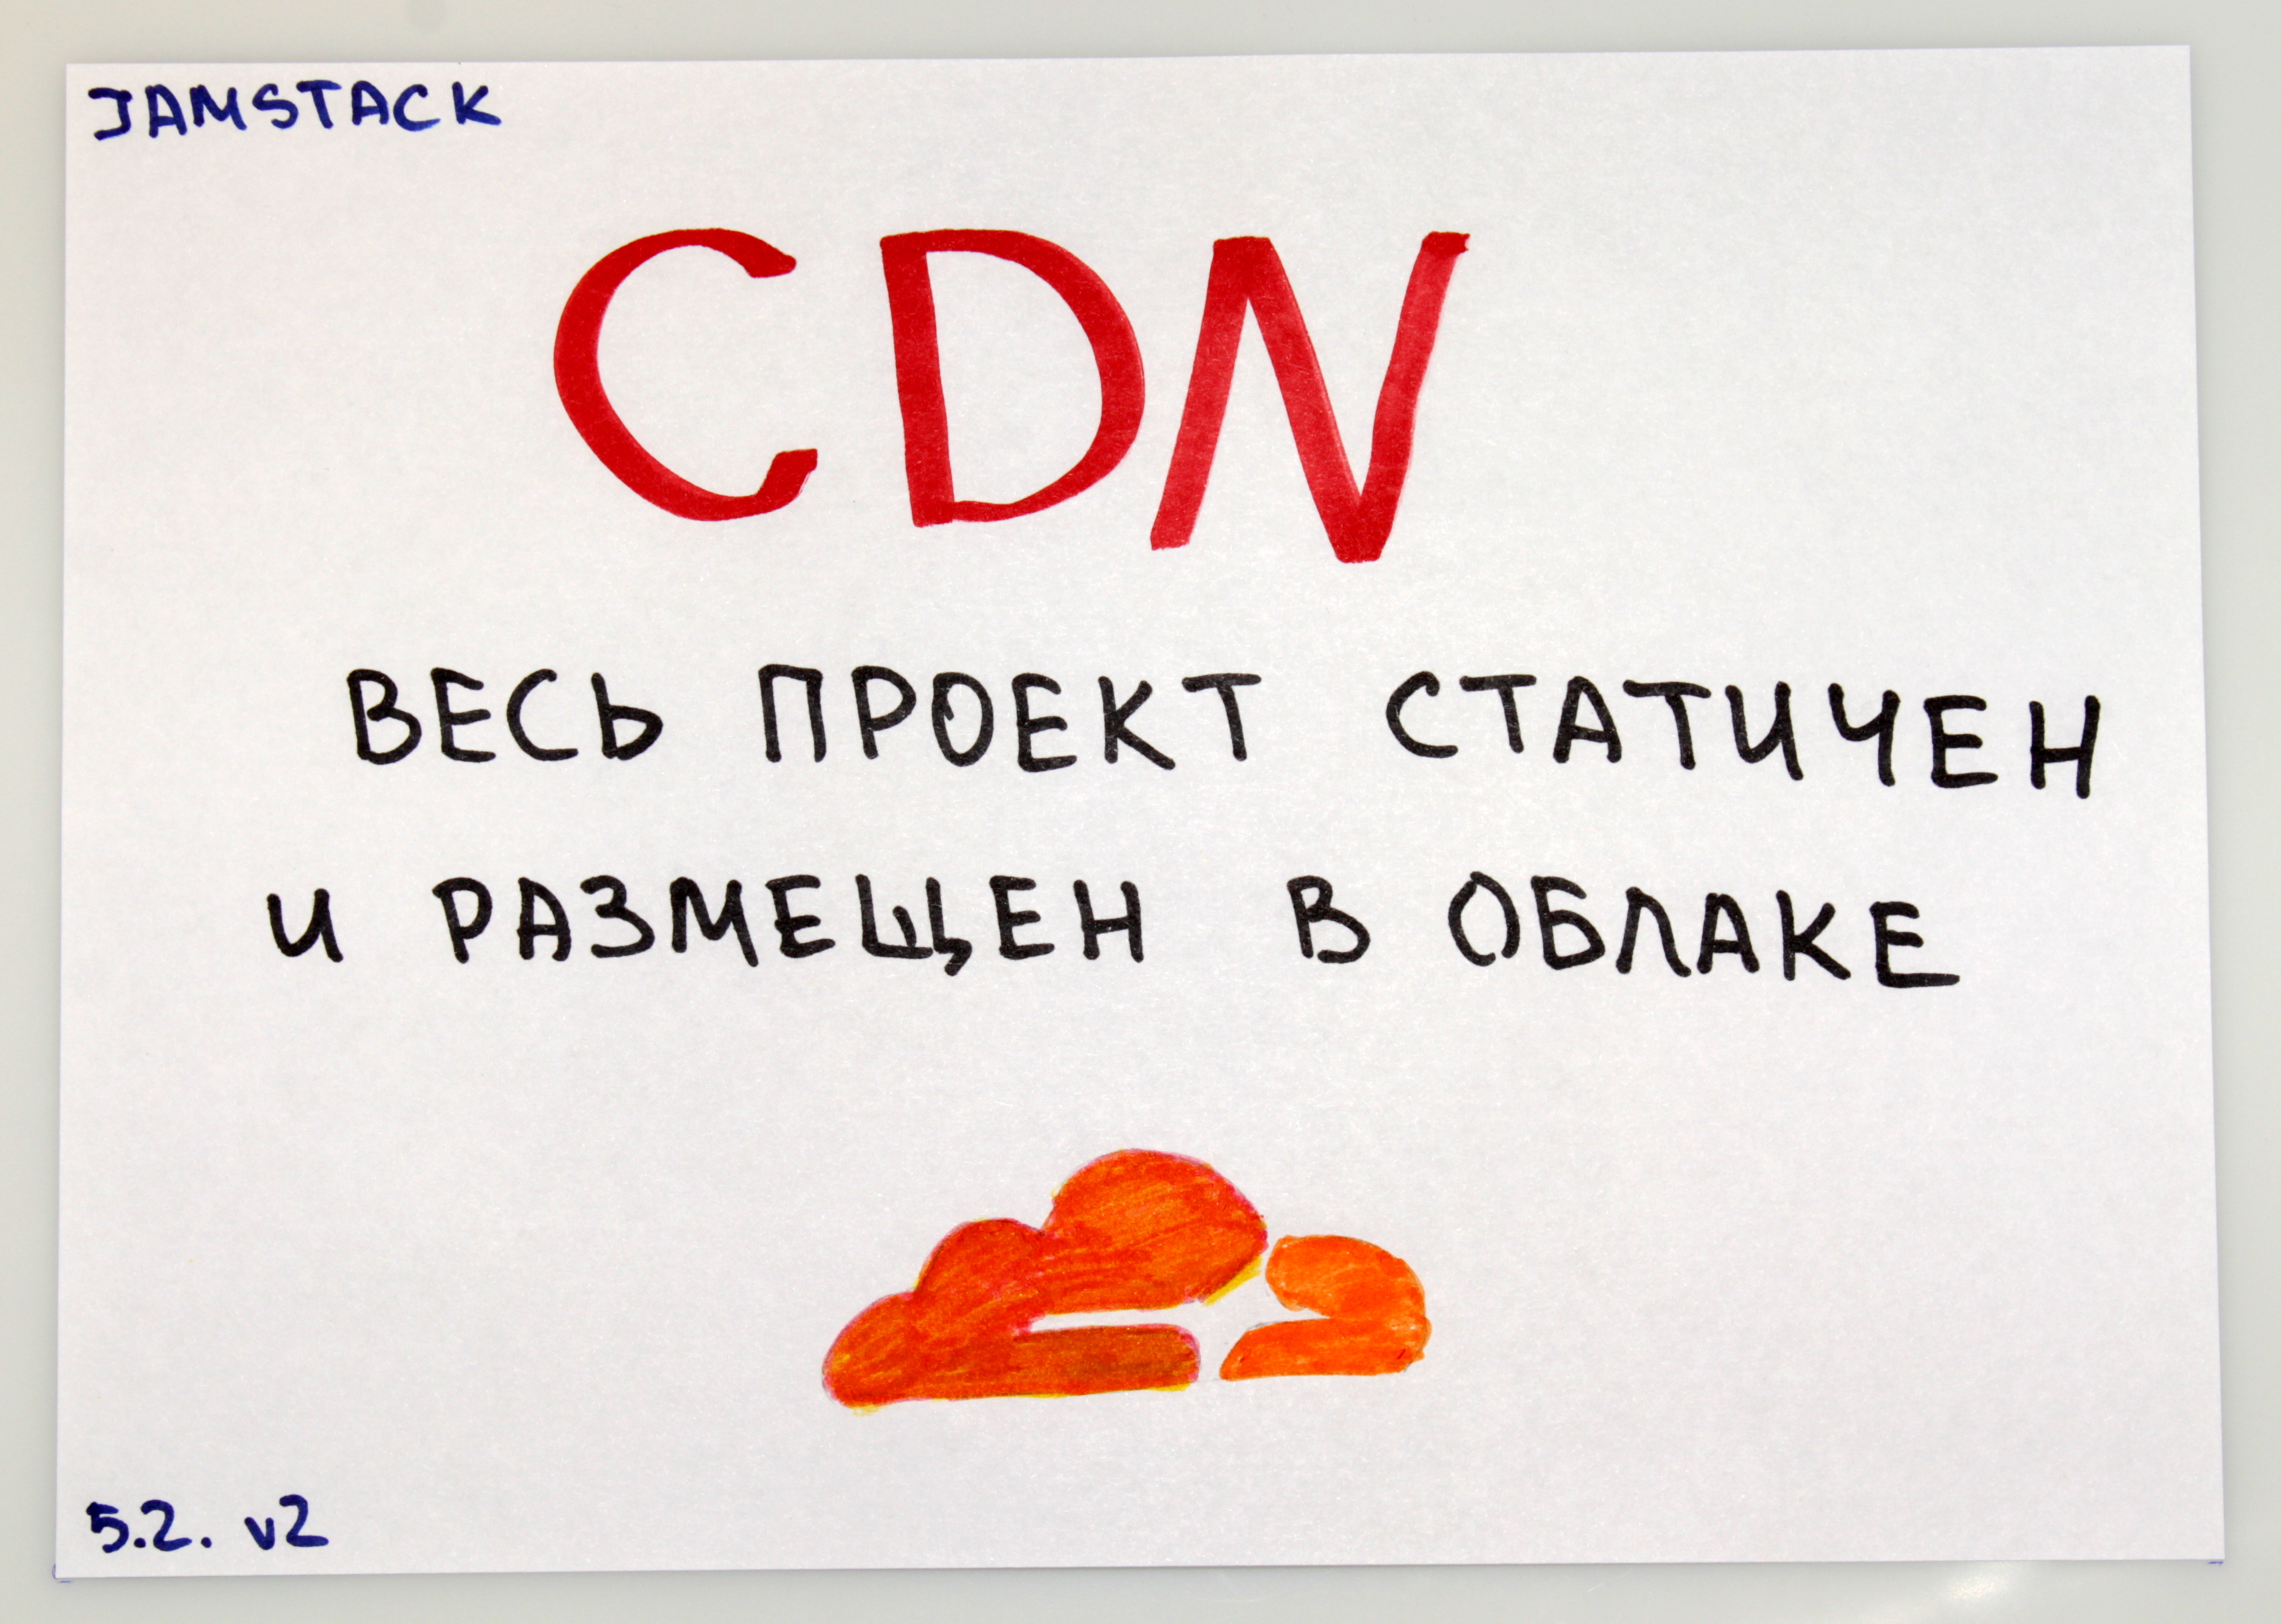 JAMSTACK
CDN
ВЕСЬ ПРОЕКТ СТАТИЧЕН
И РАЗМЕЩЕН В ОБЛАКЕ
5.2. v2